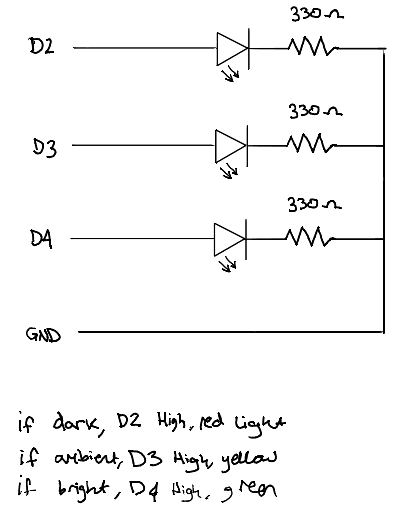 330Ω
D2
330Ω
D3
330Ω
D4
GND
if dark, D2 High, red light
if ambient, D3 High, yellow
if bright, D4 High, green